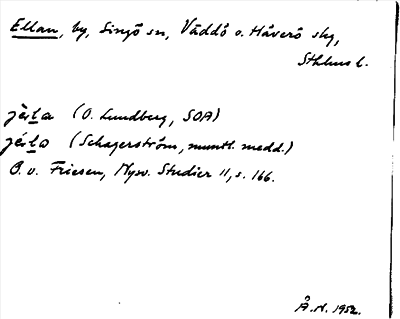 Ellan, by, Singö sn, Väddö o. Häverö skg,
Sthlms l.
(O. Lundberg, SOA)
(Schagerström, muntl. medd.)
O. v. Friesen, Mysv. Studier 11, s. 166.
Å. N. 1952.